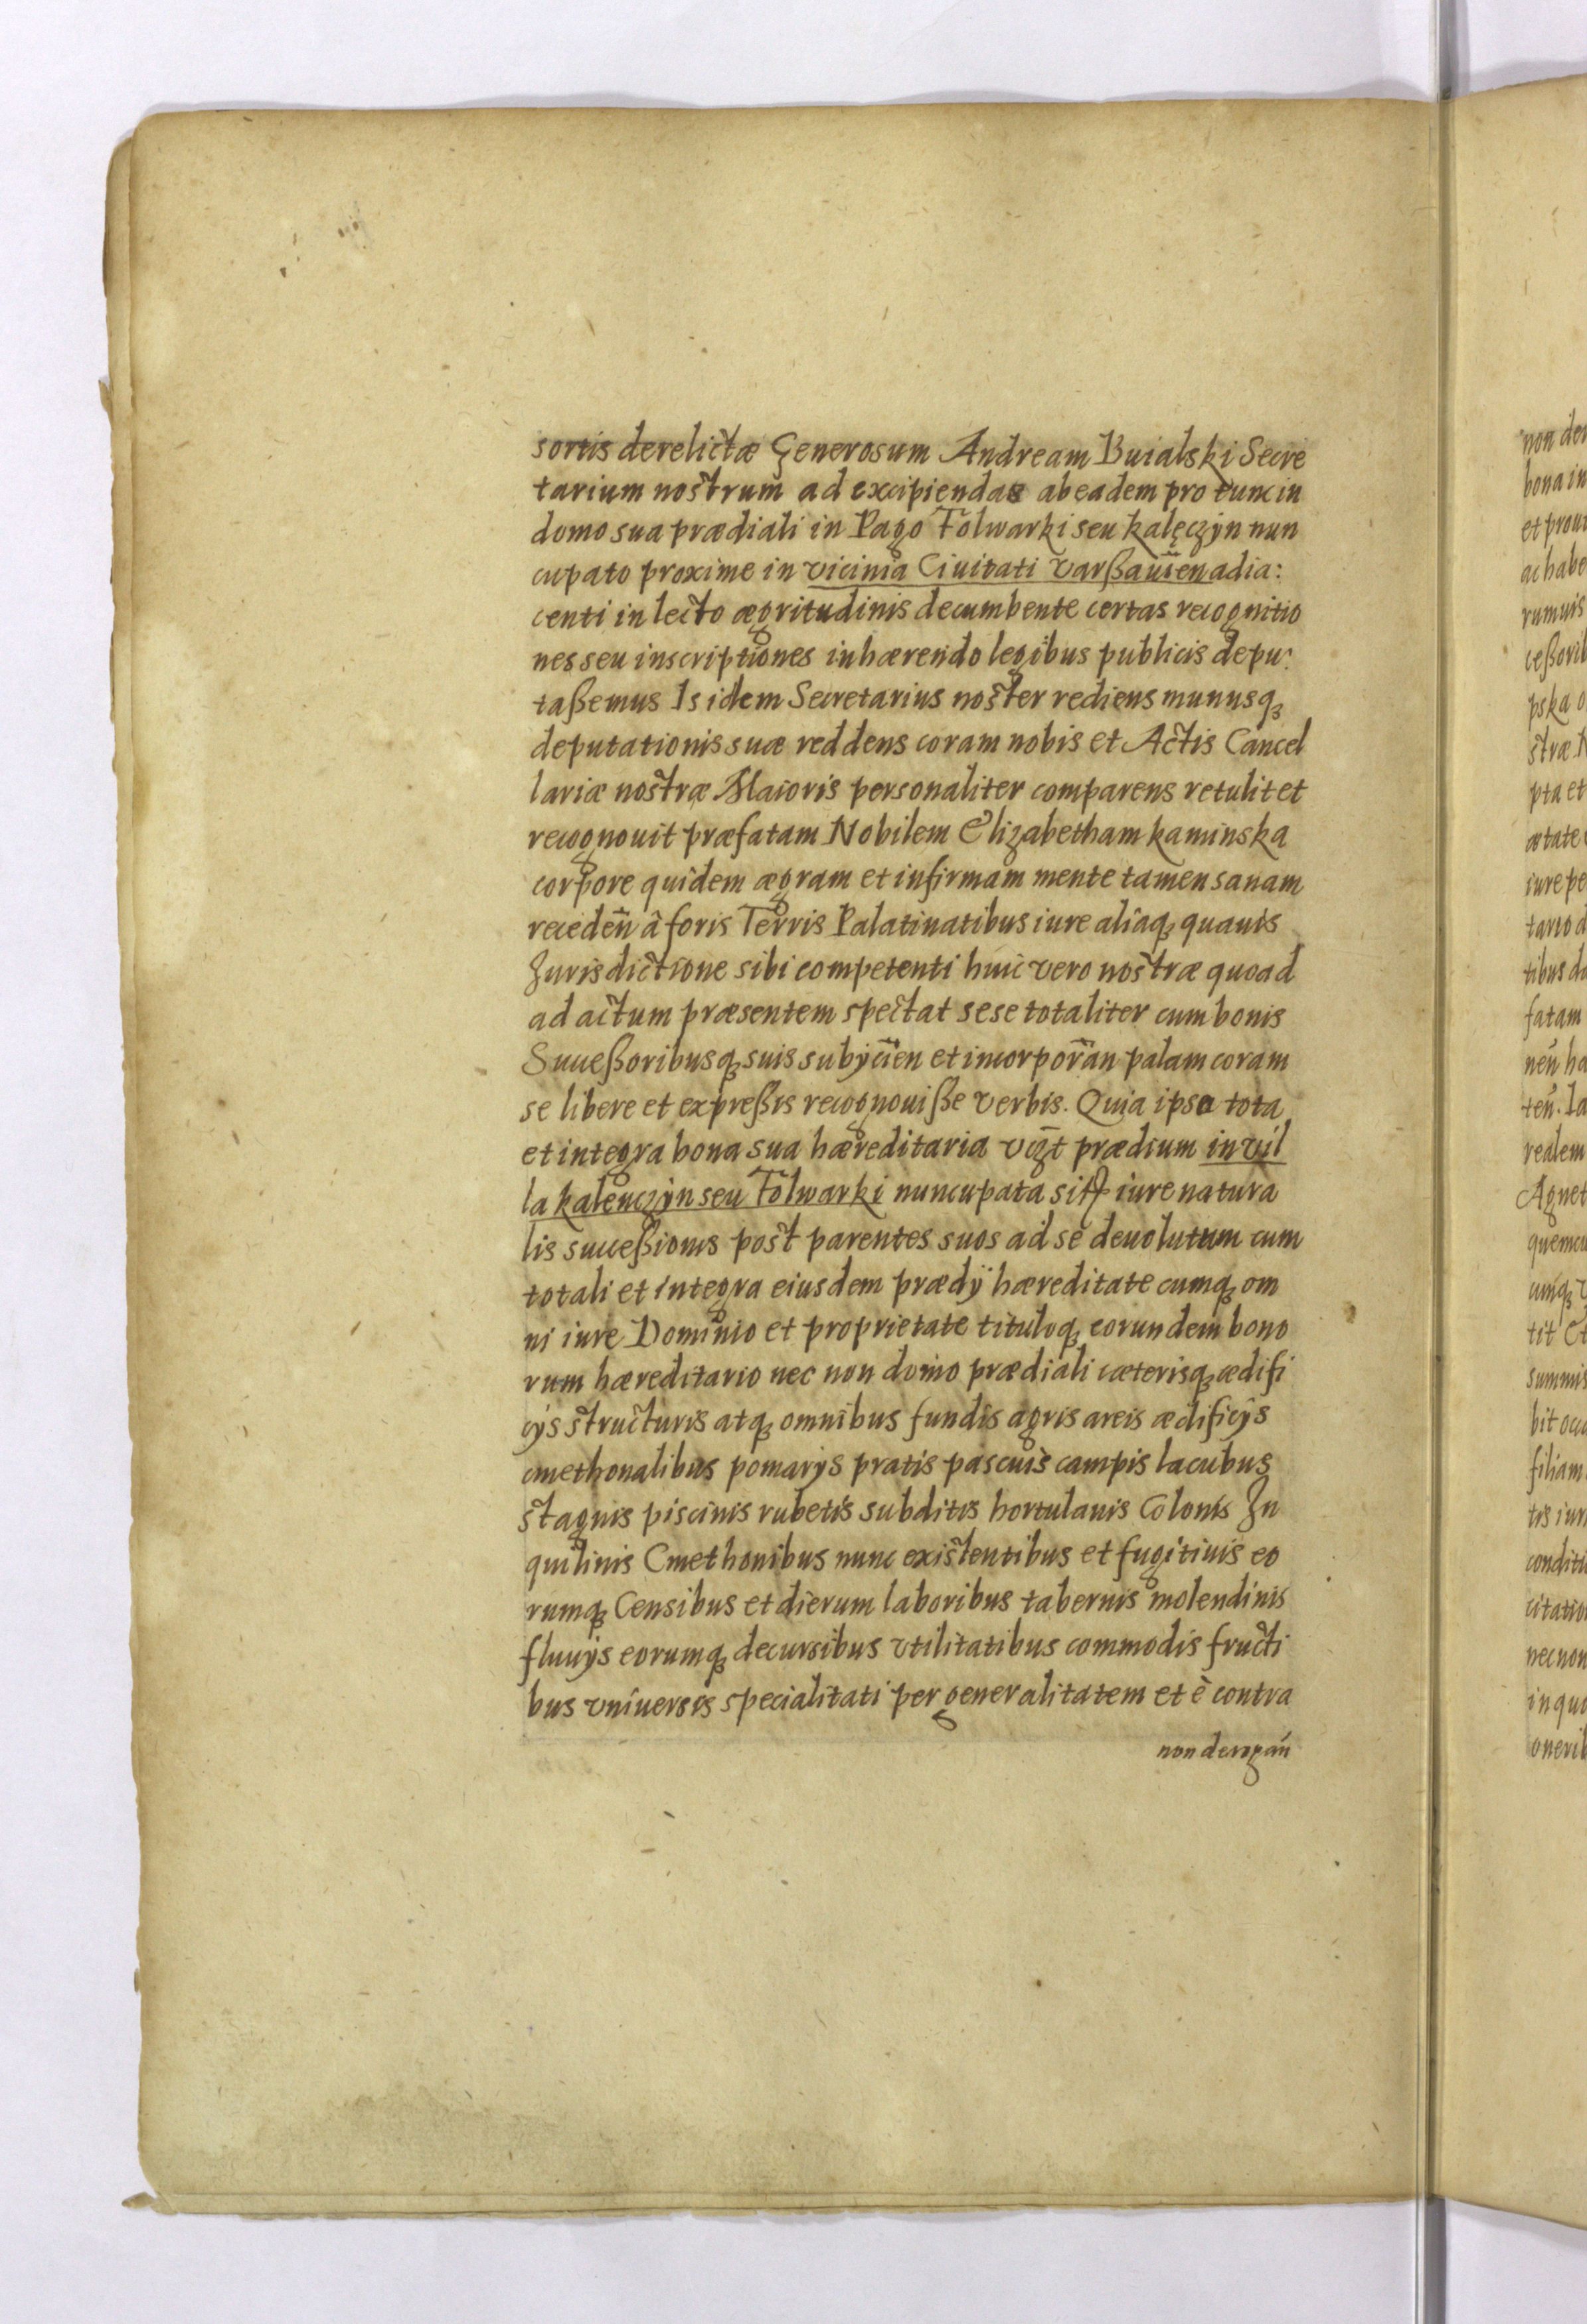 sortis derelictæ Generosum Andream Buialski Secre
tarium nostrum ad excipiendas ab eadem pro tunc in
domo sua prædiali in Pago Folwarki seu kalęczyn nun
cupato proxime in vicinia Ciuitati varßauien̄ adia:
centi in lecto ægritudinis decumbente certas recognitio
nes seu inscriptiones inhærendo legibus publicis depu:
taßemus Is idem Secretarius noster rediens munusq́
deputationis suæ reddens coram nobis et Actis Cancel
lariæ nostræ Maioris personaliter comparens retulit et
recognouit præfatam Nobilem Elizabetham kaminska
corpore quidem ægram et infirmam mente tamen sanam
receden̄ â foris Terris Palatinatibus iure aliâq quauis
Jurisdictione sibi competenti huic vero nostræ quoad
ad actum præsentem spectat sese totaliter cum bonis
Succeßoribusq suis subÿcien̄ et incorporan̄ palam coram
se libere et expreßis recognouiße verbis. Quia ipsa tota
et integra bona sua hæreditaria vczt prædium in vil
la kalenczÿn seu Folwarki nuncupata iure natura
lis succeßionis post parentes suos ad se deuolutum cum
totali et integra eiusdem prædÿ hæreditate cumq om
ni iure Dominio et proprietate tituloq eorundem bono
rum hæreditario nec non domo prædiali cæterisq ædifi
cÿs structuris atq omnibus fundis agris areis ædificÿs
cmethonalibus pomarÿs pratis pascuis campis lacubus
stagnis piscinis rubetis subditis hortulanis Colonis In
quilinis Cmethonibus nunc existentibus et fugitiuis eo
rumq Censibus et dierum laboribus tabernis molendinis
fluuÿs eorumq decursibus vtilitatibus commodis fructi
bus vniuersis specialitati per generalitatem et è contra
non derogan̄